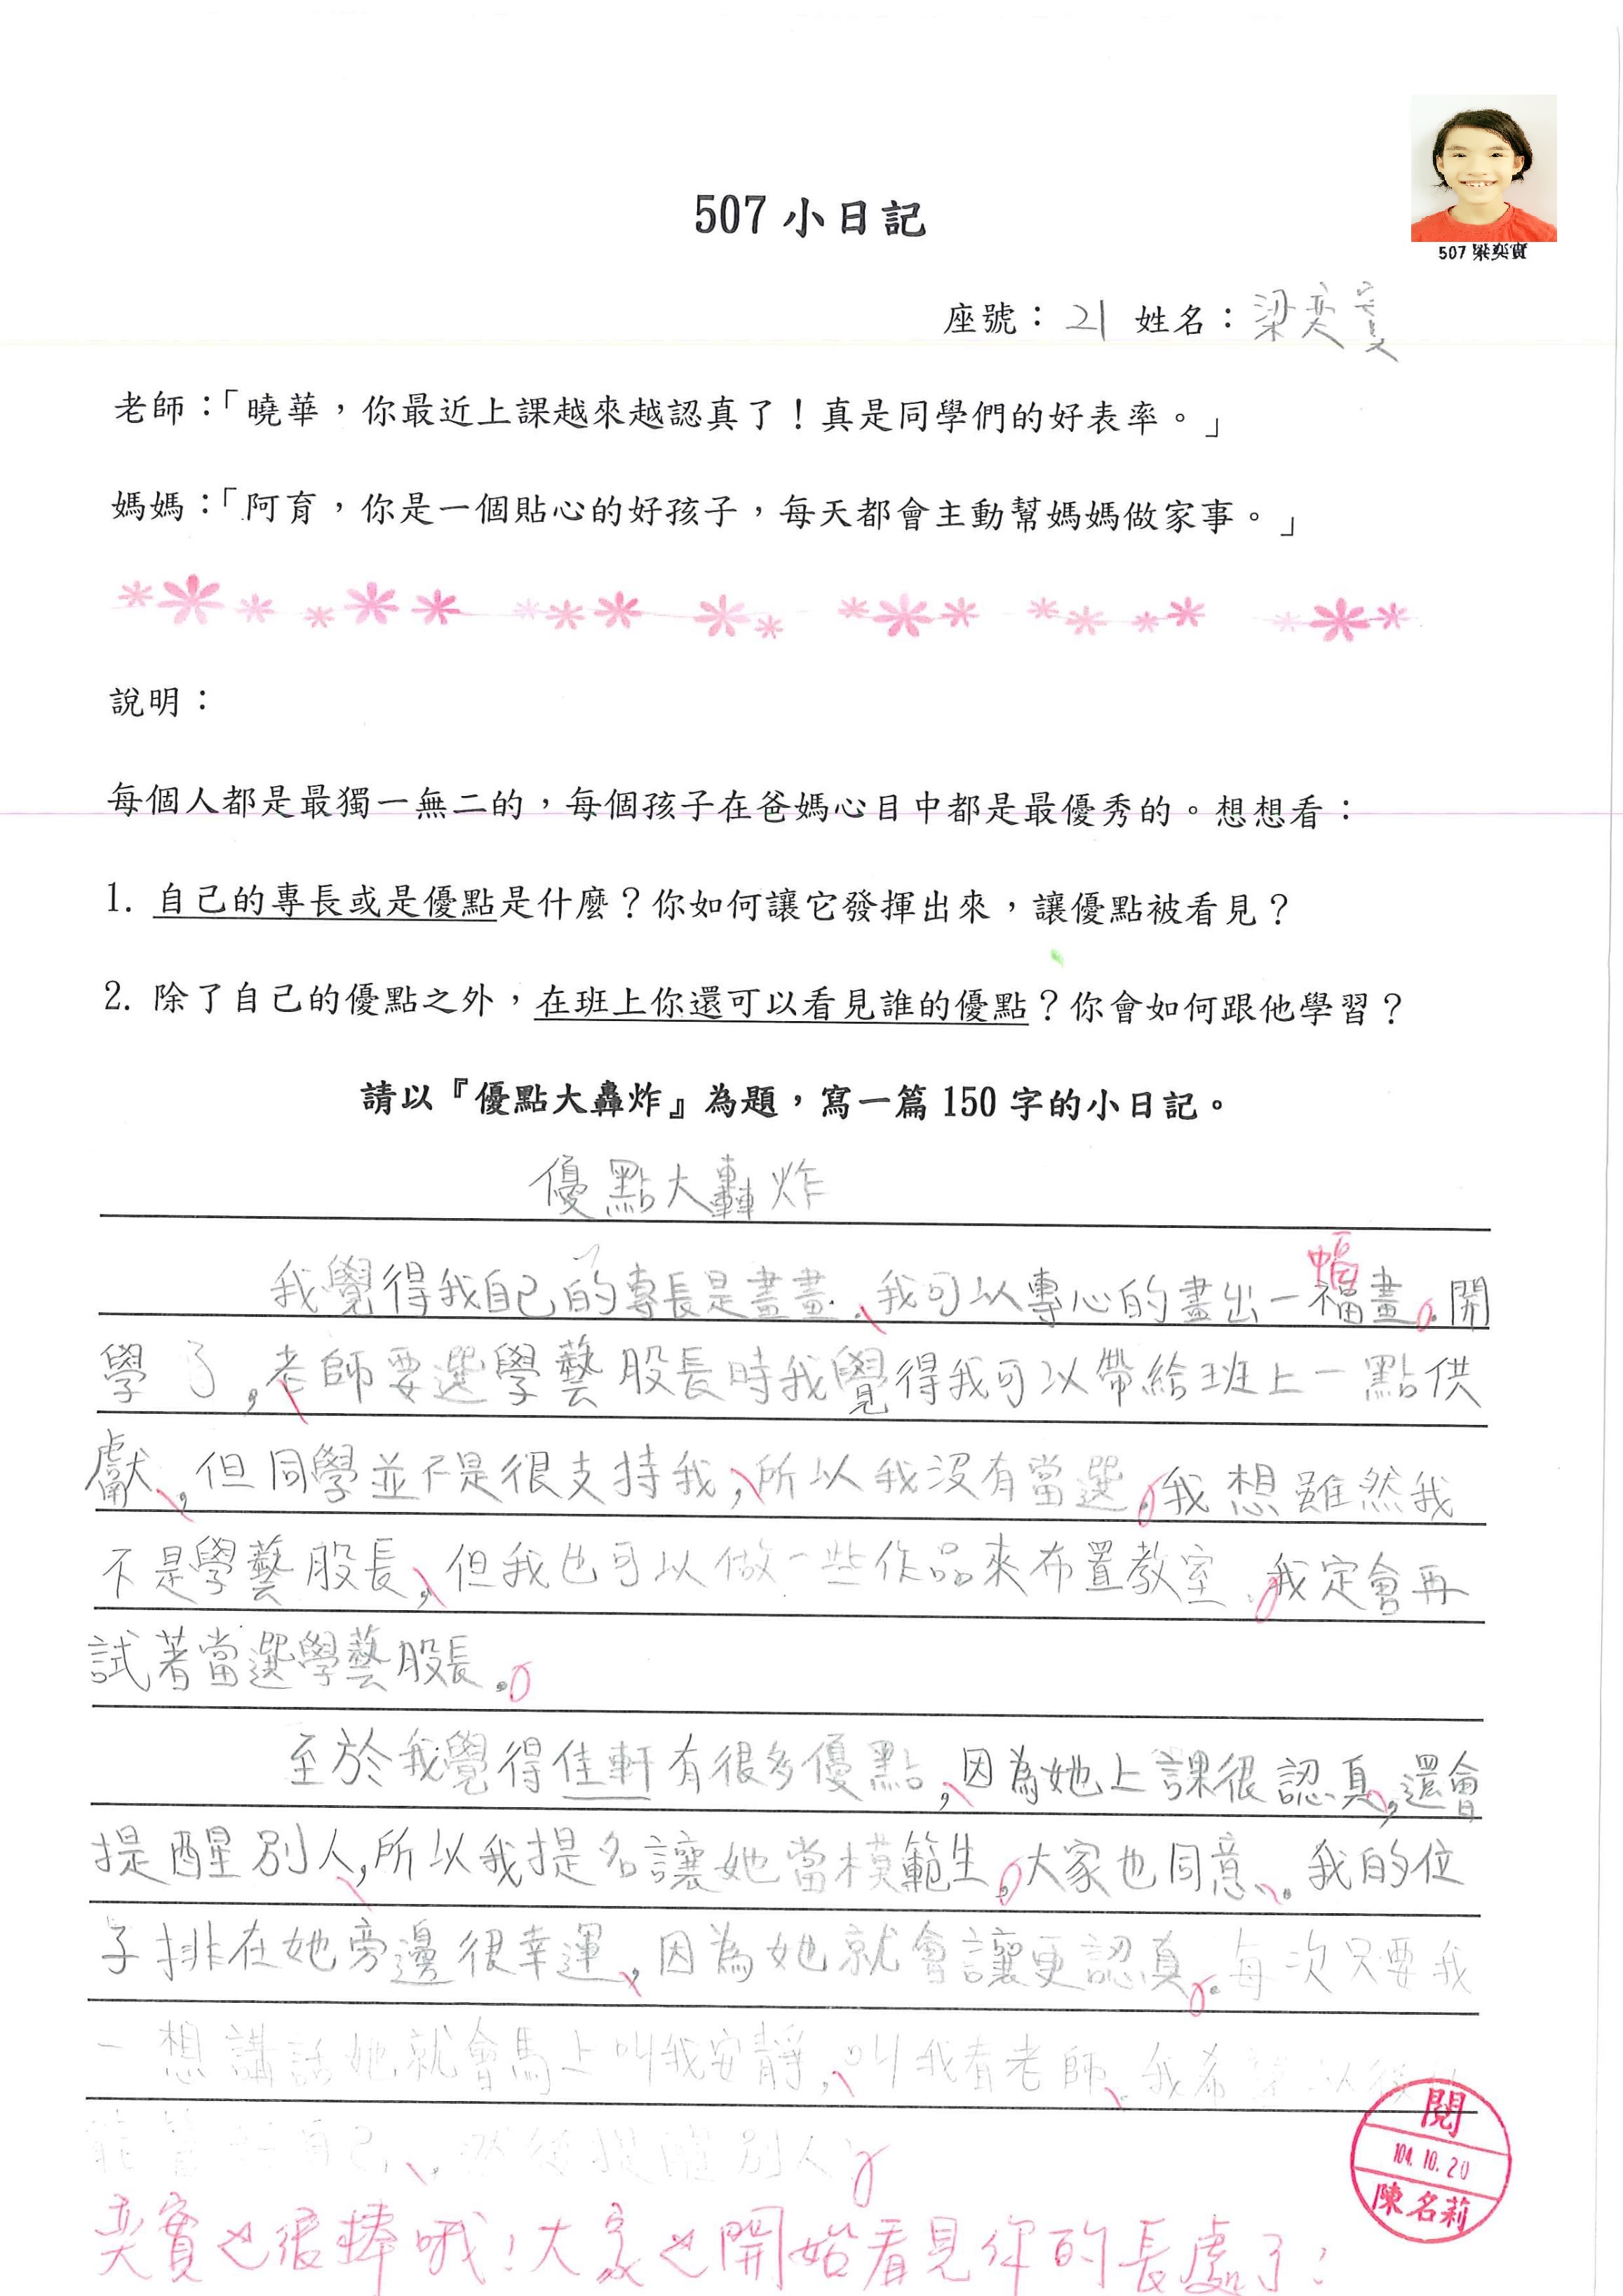 507 小日記
507 梁奕實
座號：21 姓名：梁奕實
老師：「曉華，你最近上課越來越認真了！真是同學們的好表率。」
媽媽：「阿育，你是一個貼心的好孩子，每天都會主動幫媽媽做家事。」
說明：
每個人都是最獨一無二的，每個孩子在爸媽心目中都是最優秀的。想想看：
1. 自己的專長或是優點是什麼？你如何讓它發揮出來，讓優點被看見？
2. 除了自己的優點之外，在班上你還可以看見誰的優點？你會如何跟他學習？
請以『優點大轟炸』為題，寫一篇 150 字的小日記。
優點大轟炸
幅
我覺得我自己的專長是畫畫，我可以專心的畫出一福畫。開
學了，老師要選學藝股長時我覺得我可以帶給班上一點供
獻，但同學並不是很支持我，所以我沒有當選。我想雖然我
不是學藝股長，但我也可以做一些作品來布置教室。我定會再
試著當選學藝股長。
至於我覺得佳軒有很多優點，因為她上課很認真，還會
提醒別人，所以我提名讓她當模範生。大家也同意，我的位
子排在她旁邊很幸運，因為她就會讓更認真。每次只要我
一想講話她就會馬上叫我安靜，叫我看老師，我希望以後
自己，然後提醒別人。
奕實也很棒哦！大家也開始看見你的長處了！
閱
104.10.20
陳名莉